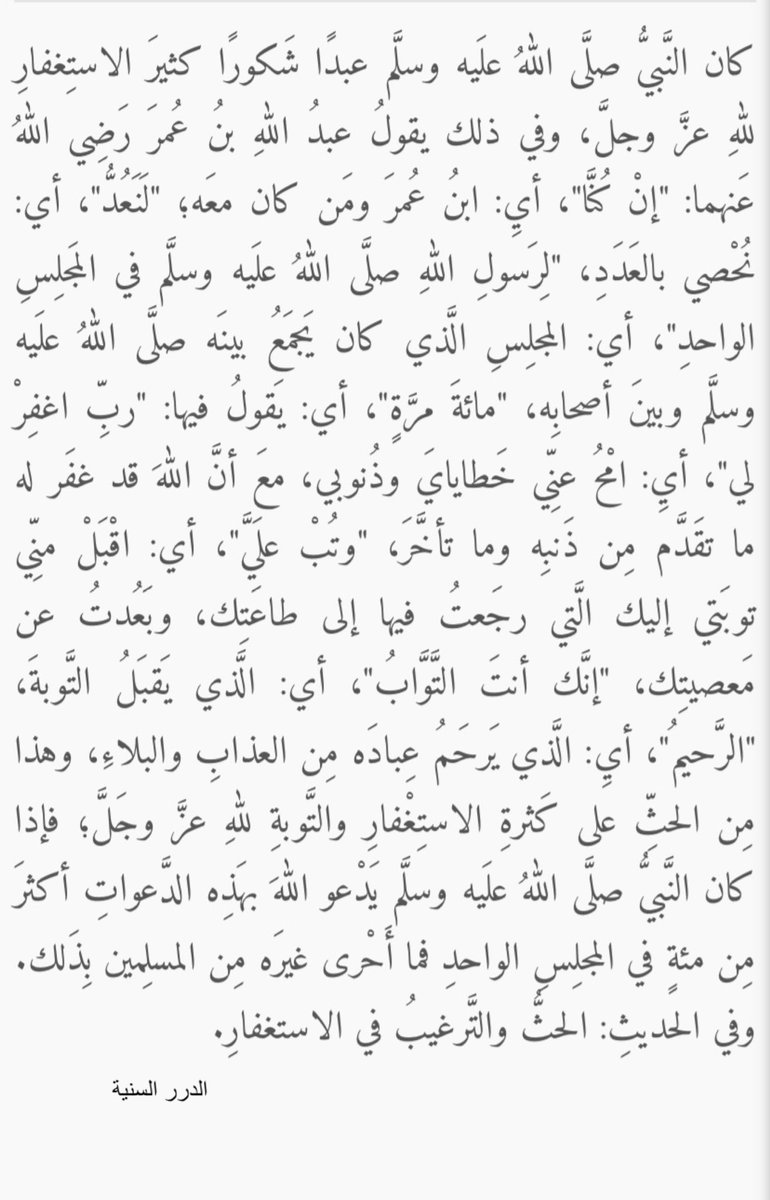 كان النَّبيُّ صلَّى اللهُ علَيه وسلَّم عبدًا شَكورًا كثيرَ الاستِغفارِ
للهِ عزَّ وجلَّ، وفي ذلك يقولُ عبدُ اللهِ بنُ عُمرَ رَضِي اللهُ
عَنهما: "إنْ كُنَّا"، أي: ابنُ عُمرَ ومَن كان معَه؛ "لَنَعُدُّ"، أي:
نُحْصي بالعَدَدِ، "لِرَسولِ اللهِ صلَّى اللهُ علَيه وسلَّم في المَجلِسِ
الواحدِ"، أي: المجلِسِ الَّذي كان يَجمَعُ بينَه صلَّى اللهُ علَيه
وسلَّم وبينَ أصحابِه، "مائةَ مرَّةٍ"، أي: يَقولُ فيها: "ربِّ اغفِرْ
لي"، أي: امْحُ عنِّي خَطايايَ وذُنوبي، معَ أنَّ اللهَ قد غفَر له
ما تقَدَّم مِن ذَنبِه وما تأخَّرَ، "وتُبْ علَيَّ"، أي: اقْبَلْ منِّي
توبَتي إليك الَّتي رجَعتُ فيها إلى طاعَتِك، وبَعُدتُ عن
مَعصيتِك، "إنَّك أنتَ التَّوَّابُ"، أي: الَّذي يَقبَلُ التَّوبةَ،
"الرَّحيمُ"، أي: الَّذي يَرحَمُ عِبادَه مِن العذابِ والبلاءِ، وهذا
مِن الحثِّ على كَثرةِ الاستِغْفارِ والتَّوبةِ للهِ عزَّ وجَلَّ؛ فإذا
كان النَّبيُّ صلَّى اللهُ علَيه وسلَّم يَدْعو اللهَ بهَذِه الدَّعواتِ أكثرَ
مِن مئةٍ في المجلِسِ الواحدِ فما أَحْرى غيرَه مِن المسلِمين بِذَلك.
وفي الحديثِ: الحثُّ والتَّرغيبُ في الاستغفارِ.
الدرر السنية